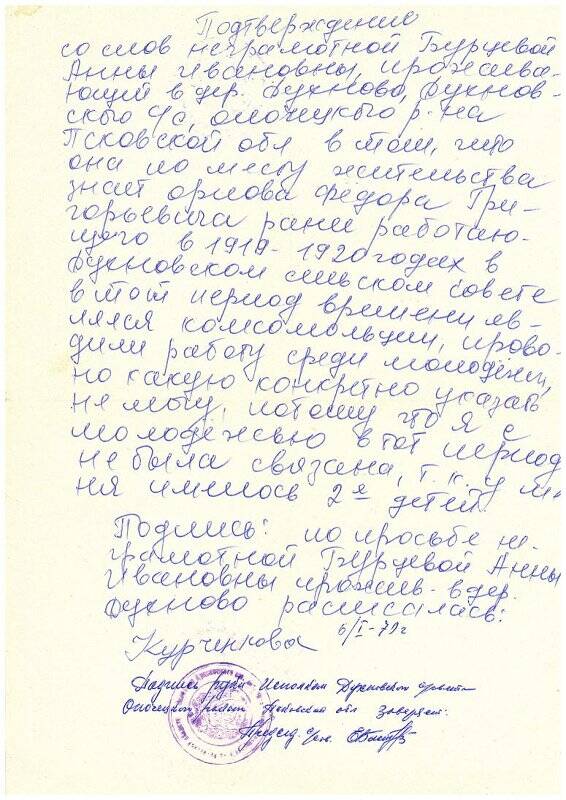 Подтверждение
со слов неграмотной Бурцевой
Анны Ивановны, прожива-
ющий в дер. Духново, Духнов-
ского с/с, опочецкого р-на
Псковской обл в том, что
она по месту жительства
знает орлова Фёдора Гри-
горьевича ранее работаю-
щего в 1919-1920 годах в
Духновском сельском совете
в тот период времени яв-
лялся комсомольцем, прово-
дили работу среди молодёжи,
но какую конкретно указать
не могу, потому что я с
молодёжью в тот период
не была связана, т.к. у ме
ня имелось 2е детей.
Подпись: по просьбе не-
грамотной Бурцевой Анны
Ивановны прожив. в дер.
Духново расписалась:
Курченкова 6/I-71г
Подпись руки Исполком Духновского с/совета
Опочецкого района Псковской обл заверяет.
Председ. с/сов.